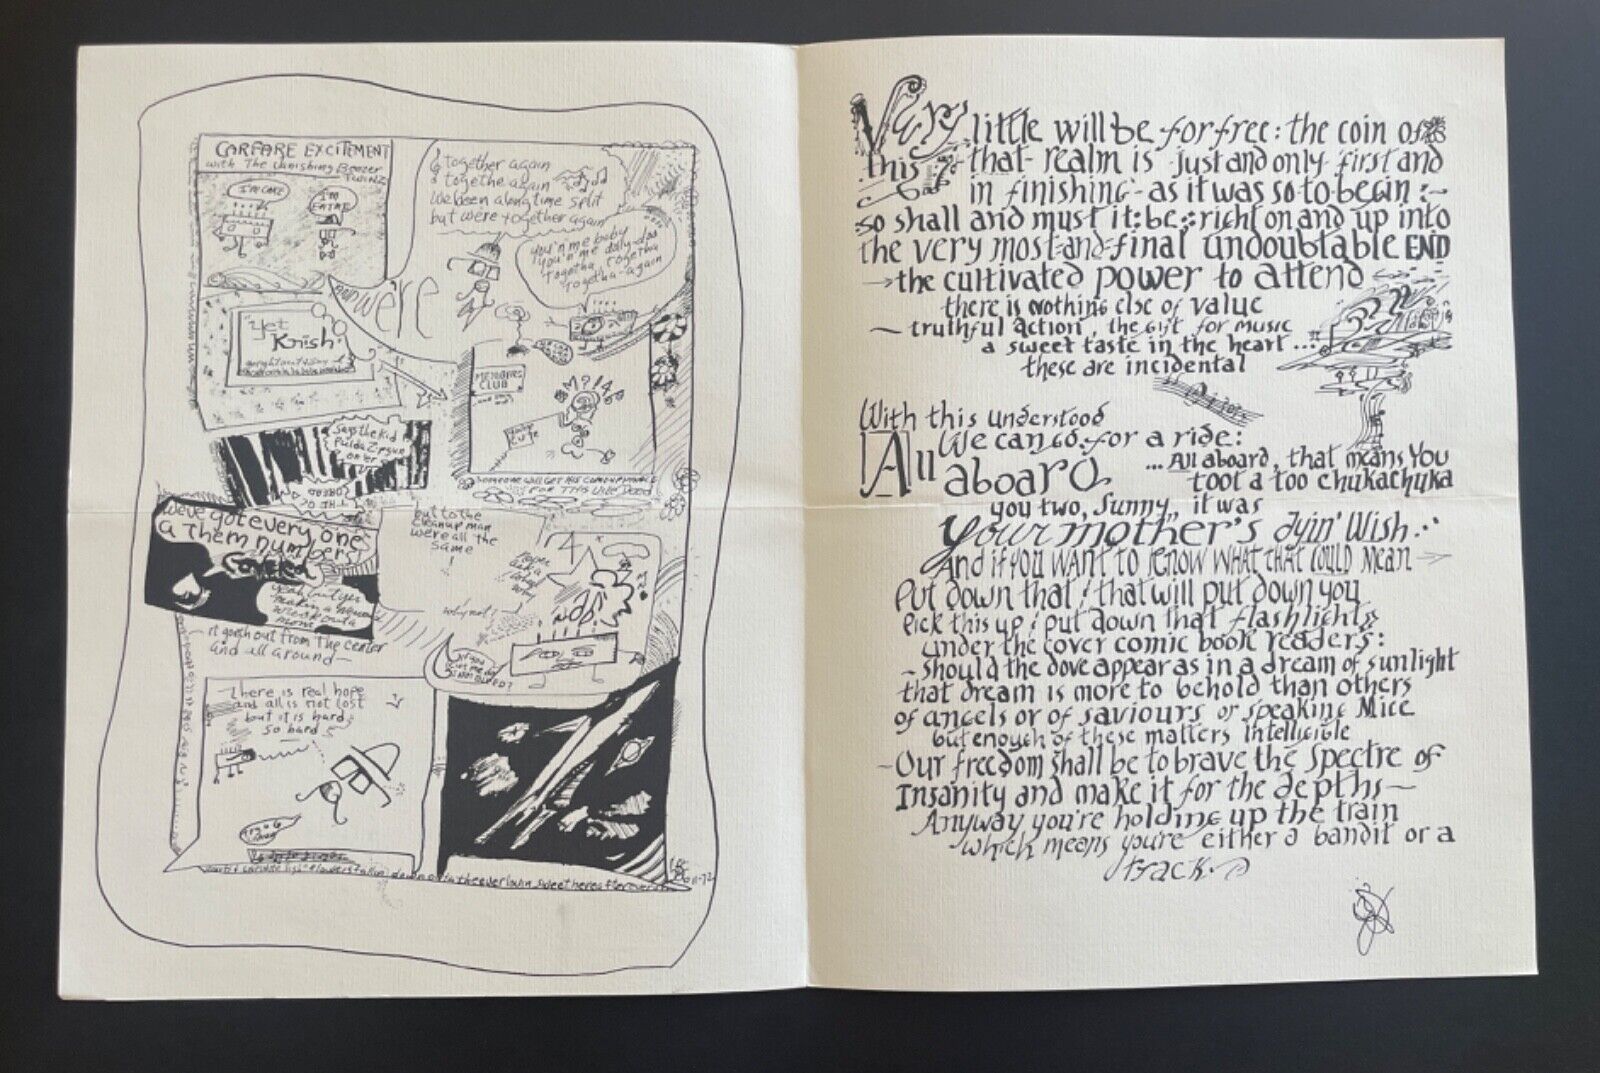 CARFARE EXCITEMENT
with The Vanishing Boozer
TWINZ
I'M CAKE
I'M
EATIN'
& together again
& togethe again
We been alongtime split
but were together again
you'n me baby
you'n me dolly-doo
Togetha Togetha
Togetha-again
AND
We're
Yet
Krish
MEMBERS
CLUB
M?!4@
SOMEONE WILL GET HIS COMEUPPANCE
FOR THIS VILE DEED
Says the Kid
We've got every one
a Them numbers
Covered
yeah but yer
making a
mom
but to the
cleanup man
we're all the
same
!
why not?
it goesh out from The center
and all around—
There is real hope
and all is not lost
but it is hard
so hard
Very little will be for free: the coin of
this & that realm is just and only first and
in finishing - as it was so to begin:-
so shall and must it: be: right on and up into
the very most-and-final undoubtable END
→ the cultivated power to attend
there is nothing else of value
— truthful action, the gift for music
a sweet taste in the heart...
these are incidental
With this understood
We can go for a ride:
All aboard
... All aboard, that means You
toot a too chukachuka
you two, Sunny, it was
your mother's dyin' Wish..
And if YOU WANT TO KNOW WHAT THAT COULD MEAN →
Put down that! that will put down you
Pick this up! put down that flashlight
under the cover comic book readers:
- Should the dove appear as in a dream of sunlight
that dream is more to behold than others
of angels or of saviours or speaking Mice
but enough of these matters Intelligible
- Our freedom shall be to brave the Spectre of
Insanity and make it for the depths—
Anyway you're holding up the train
which means you're either a bandit or a
track.